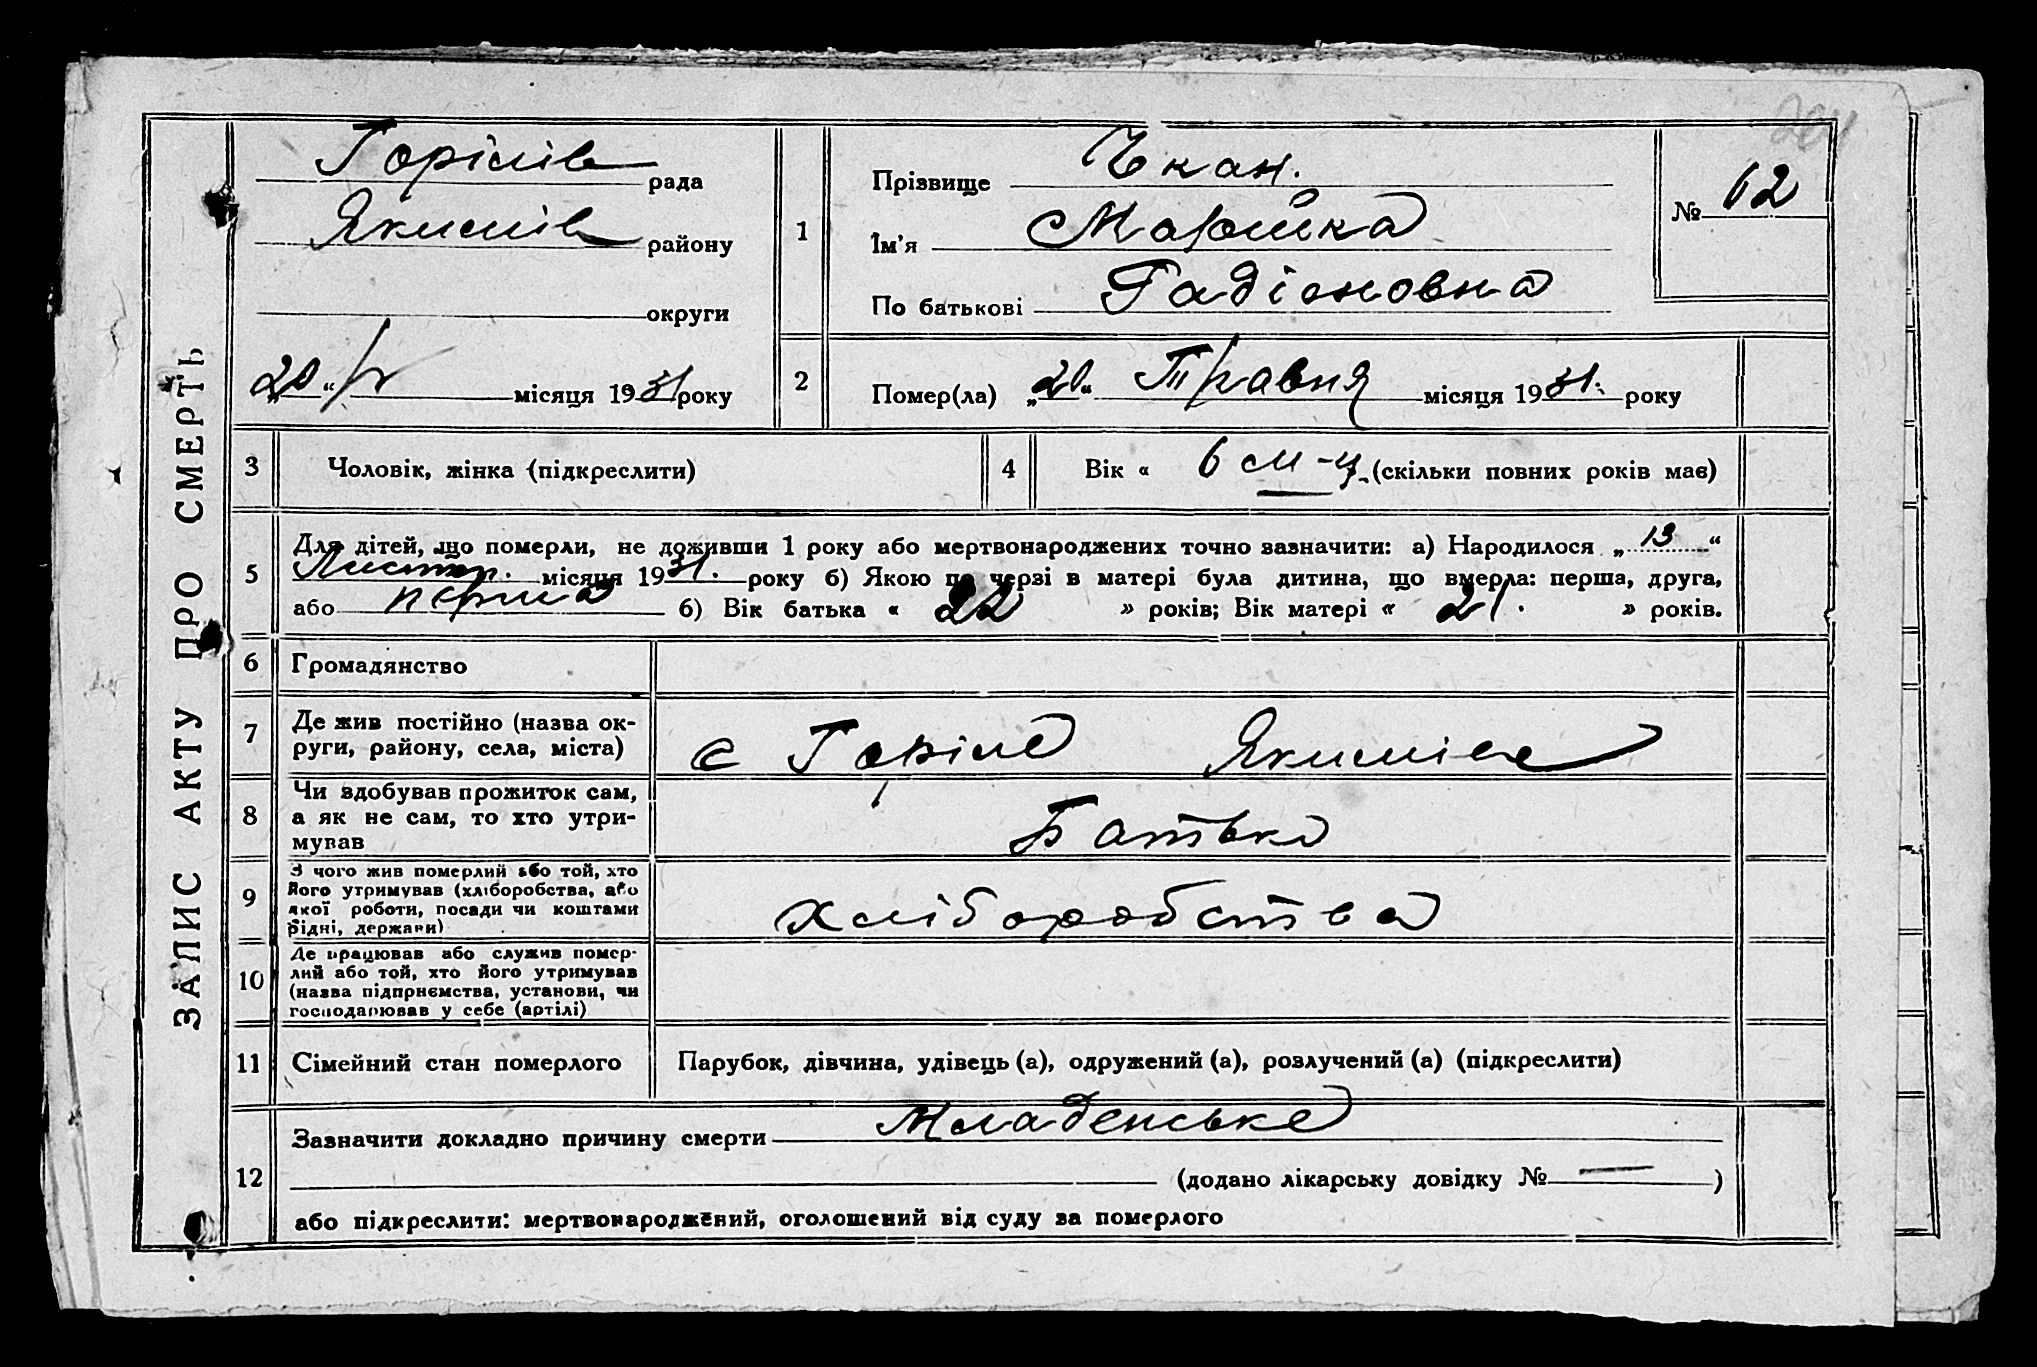 ЗАПИС АКТУ ПРО СМЕРТЬ
Горілів рада
Якимів району
округи
„20“ /V місяця 1931 року
1
Прізвище Чкан.
Ім'я Марійка
По батькові Радіоновна
№ 12
2
Помер(ла) „20“ Травня місяця 1931. року
3 Чоловік, жінка (підкреслити)
4 Вік « 6 м-ц. (скільки повних років має)
5
Для дітей, що померли, не доживши 1 року або мертвонароджених точно зазначити: а) Народилося „13“
Листоп. місяця 1931. року б) Якою по черзі в матері була дитина, що вмерла: перша, друга,
або перша б) Вік батька « 22 » років; Вік матері « 21. » років.
6 Громадянство
7 Де жив постійно (назва ок-
руги, району, села, міста)
с Горіле Якимів
8 Чи здобував прожиток сам,
а як не сам, то хто утри-
мував
Батько
9 З чого жив померлий або той, хто
його утримував (хліборобства, або
якої роботи, посади чи коштами
рідні, держави)
хліборобства
10 Де працював або служив помер-
лий або той, хто його утримував
(назва підприємства, установи, чи
господарював у себе (артілі)
11 Сімейний стан померлого
Парубок, дівчина, удівець (а), одружений (а), розлучений (а) (підкреслити)
12
Зазначити докладно причину смерти Младенське
(додано лікарську довідку № — )
або підкреслити: мертвонароджений, оголошений від суду за померлого